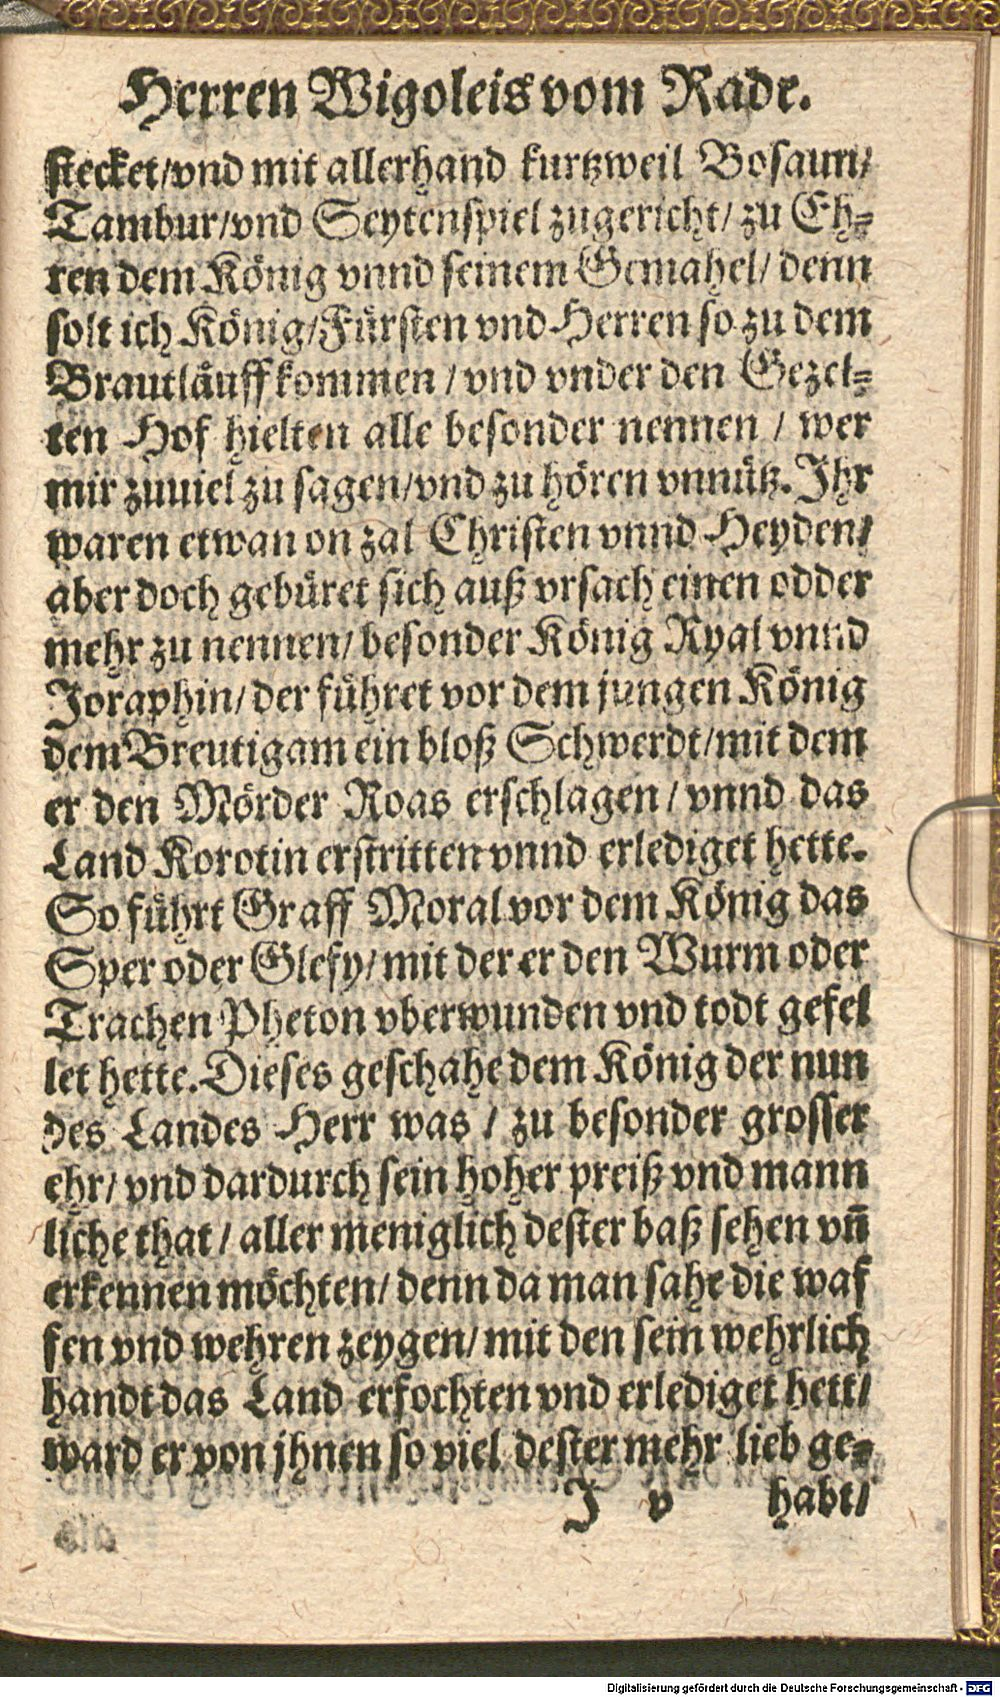 Herren Wigoleis vom Rade.
stecket/vnd mit allerhand kurtzweil Bosaun/
Tambur/vnd Seytenspiel zugericht/ zu Eh⸗
ren dem König vnnd seinem Gemahel/ denn
solt ich König/Fürsten vnd Herren so zu dem
Brautlåuff kommen / vnd vnder den Gezel⸗
ten Hof hielten alle besonder nennen / wer
mir zuuiel zu sagen/vnd zu hören vnnütz. Ihr
waren etwan on zal Christen vnnd Heyden/
aber doch gebüret sich auß vrsach einen odder
mehr zu nennen/ besonder König Ryal vnnd
Joraphin/ der führet vor dem jungen König
dem Breutigam ein bloß Schwerdt/mit dem
er den Mörder Roas erschlagen / vnnd das
Land Korotin erstritten vnnd erlediget hette.
So führt Graff Moral vor dem König das
Sper oder Glefy/ mit der er den Wurm oder
Trachen Pheton vberwunden vnd todt gefel
let hette. Dieses geschahe dem König der nun
des Landes Herr was / zu besonder grosser
ehr/ vnd dardurch sein hoher preiß vnd mann
liche that / aller meniglich dester baß sehen vn̄
erkennen möchten/ denn da man sahe die waf
fen vnd wehren zeygen/ mit den sein wehrlich
handt das Land erfochten vnd erlediget hett/
ward er von jhnen so viel dester mehr lieb ge⸗
J v habt/
Digitalisierung gefördert durch die Deutsche Forschungsgemeinschaft - DFG